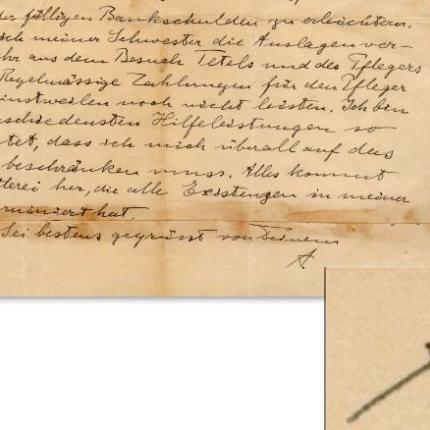 der fälligen Bankschulden zu erleichtern.
ich meiner Schwester die Auslagen ver-
aus dem Besuch Tetels und des Pflegers
Regelmässige Zahlungen für den Pfleger
einstweilen noch nicht leisten. Ich bin
schiedensten Hilfeleistungen so
tet, dass ich mich überall auf das
beschränken muss. Alles kommt
derei her, die alle Existenzen in meiner
ruiniert hat.
Sei bestens gegrüsst von Deinem
A.